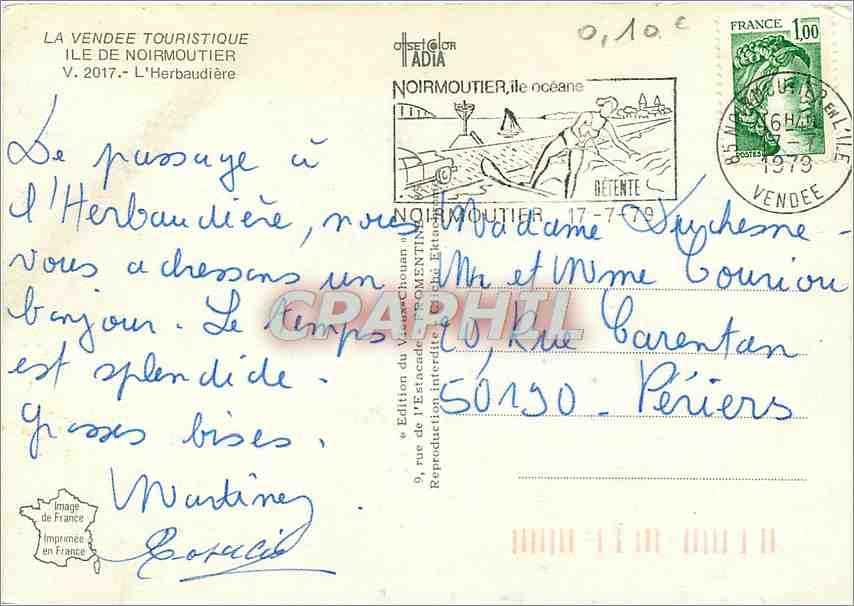 LA VENDEE TOURISTIQUE
ILE DE NOIRMOUTIER
V. 2017.- L'Herbaudière
offset color
IADIA
0,10 €
FRANCE 1,00
POSTES
NOIRMOUTIER, île océane
DÉTENTE
NOIRMOUTIER 17-7-79
85 NOIRMOUTIER EN L'ILE
16H
17-7
1979
VENDEE
De passage à
l'Herbaudière, nous
vous adressons un
bonjour. Le temps
est splendide.
Grosses bises.
Martine
« Edition du Vieux-Chouan »
9, rue de l'Estacade - FROMENTINE
Reproduction interdite - Cliché Ektachrome
Madame Duchesne -
Mr et Mme Couriou
20, Rue Carentan
50190 - Périers
CPARPHIL
Image
de France
Imprimée
en France